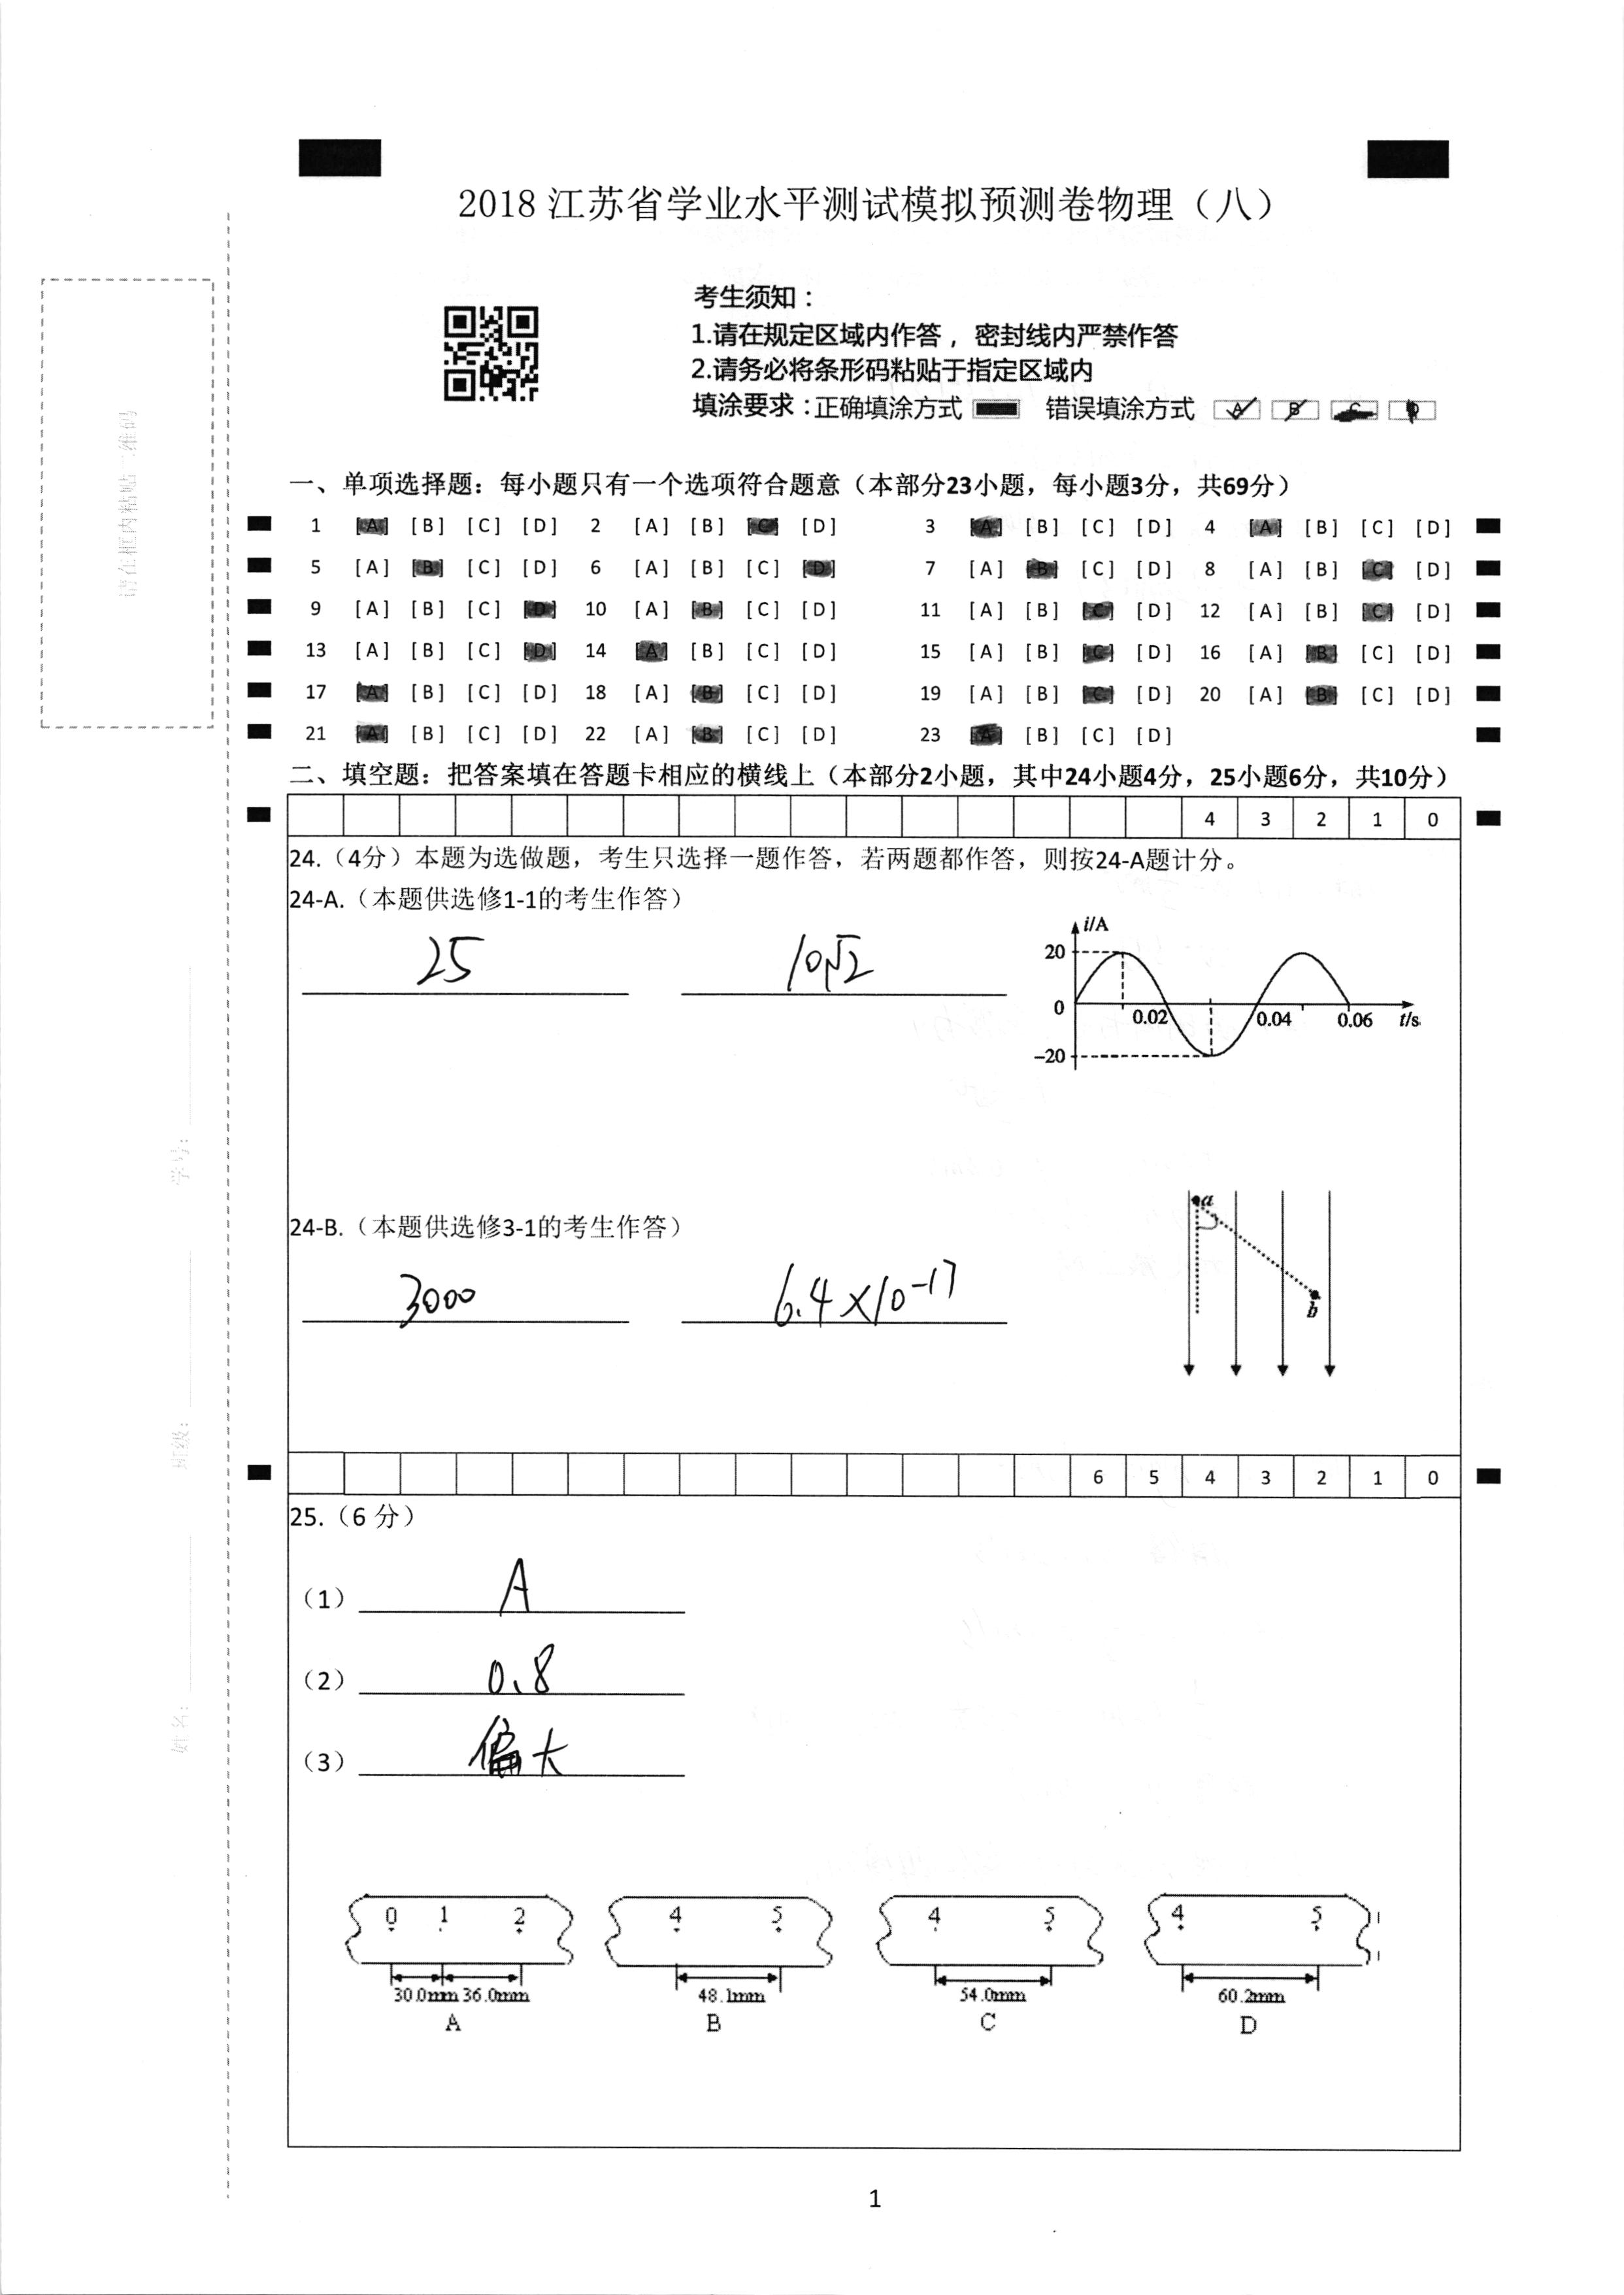 2018 江苏省学业水平测试模拟预测卷物理（八）
考生须知：
1.请在规定区域内作答，密封线内严禁作答
2.请务必将条形码粘贴于指定区域内
填涂要求：正确填涂方式 错误填涂方式 A B C D
请在框内粘贴二维码
学号：
班级：
姓名：
一、单项选择题：每小题只有一个选项符合题意（本部分23小题，每小题3分，共69分）
1 [A] [B] [C] [D] 2 [A] [B] [C] [D] 3 [A] [B] [C] [D] 4 [A] [B] [C] [D]
5 [A] [B] [C] [D] 6 [A] [B] [C] [D] 7 [A] [B] [C] [D] 8 [A] [B] [C] [D]
9 [A] [B] [C] [D] 10 [A] [B] [C] [D] 11 [A] [B] [C] [D] 12 [A] [B] [C] [D]
13 [A] [B] [C] [D] 14 [A] [B] [C] [D] 15 [A] [B] [C] [D] 16 [A] [B] [C] [D]
17 [A] [B] [C] [D] 18 [A] [B] [C] [D] 19 [A] [B] [C] [D] 20 [A] [B] [C] [D]
21 [A] [B] [C] [D] 22 [A] [B] [C] [D] 23 [A] [B] [C] [D]
二、填空题：把答案填在答题卡相应的横线上（本部分2小题，其中24小题4分，25小题6分，共10分）
4 3 2 1 0
24.（4分）本题为选做题，考生只选择一题作答，若两题都作答，则按24-A题计分。
24-A.（本题供选修1-1的考生作答）
25 10√2
i/A
20
0 0.02 0.04 0.06 t/s
-20
24-B.（本题供选修3-1的考生作答）
3000 6.4×10⁻¹⁷
a
b
6 5 4 3 2 1 0
25.（6 分）
（1） A
（2） 0.8
（3） 偏大
0 1 2 4 5 4 5 4 5
30.0mm 36.0mm 48.1mm 54.0mm 60.2mm
A B C D
1